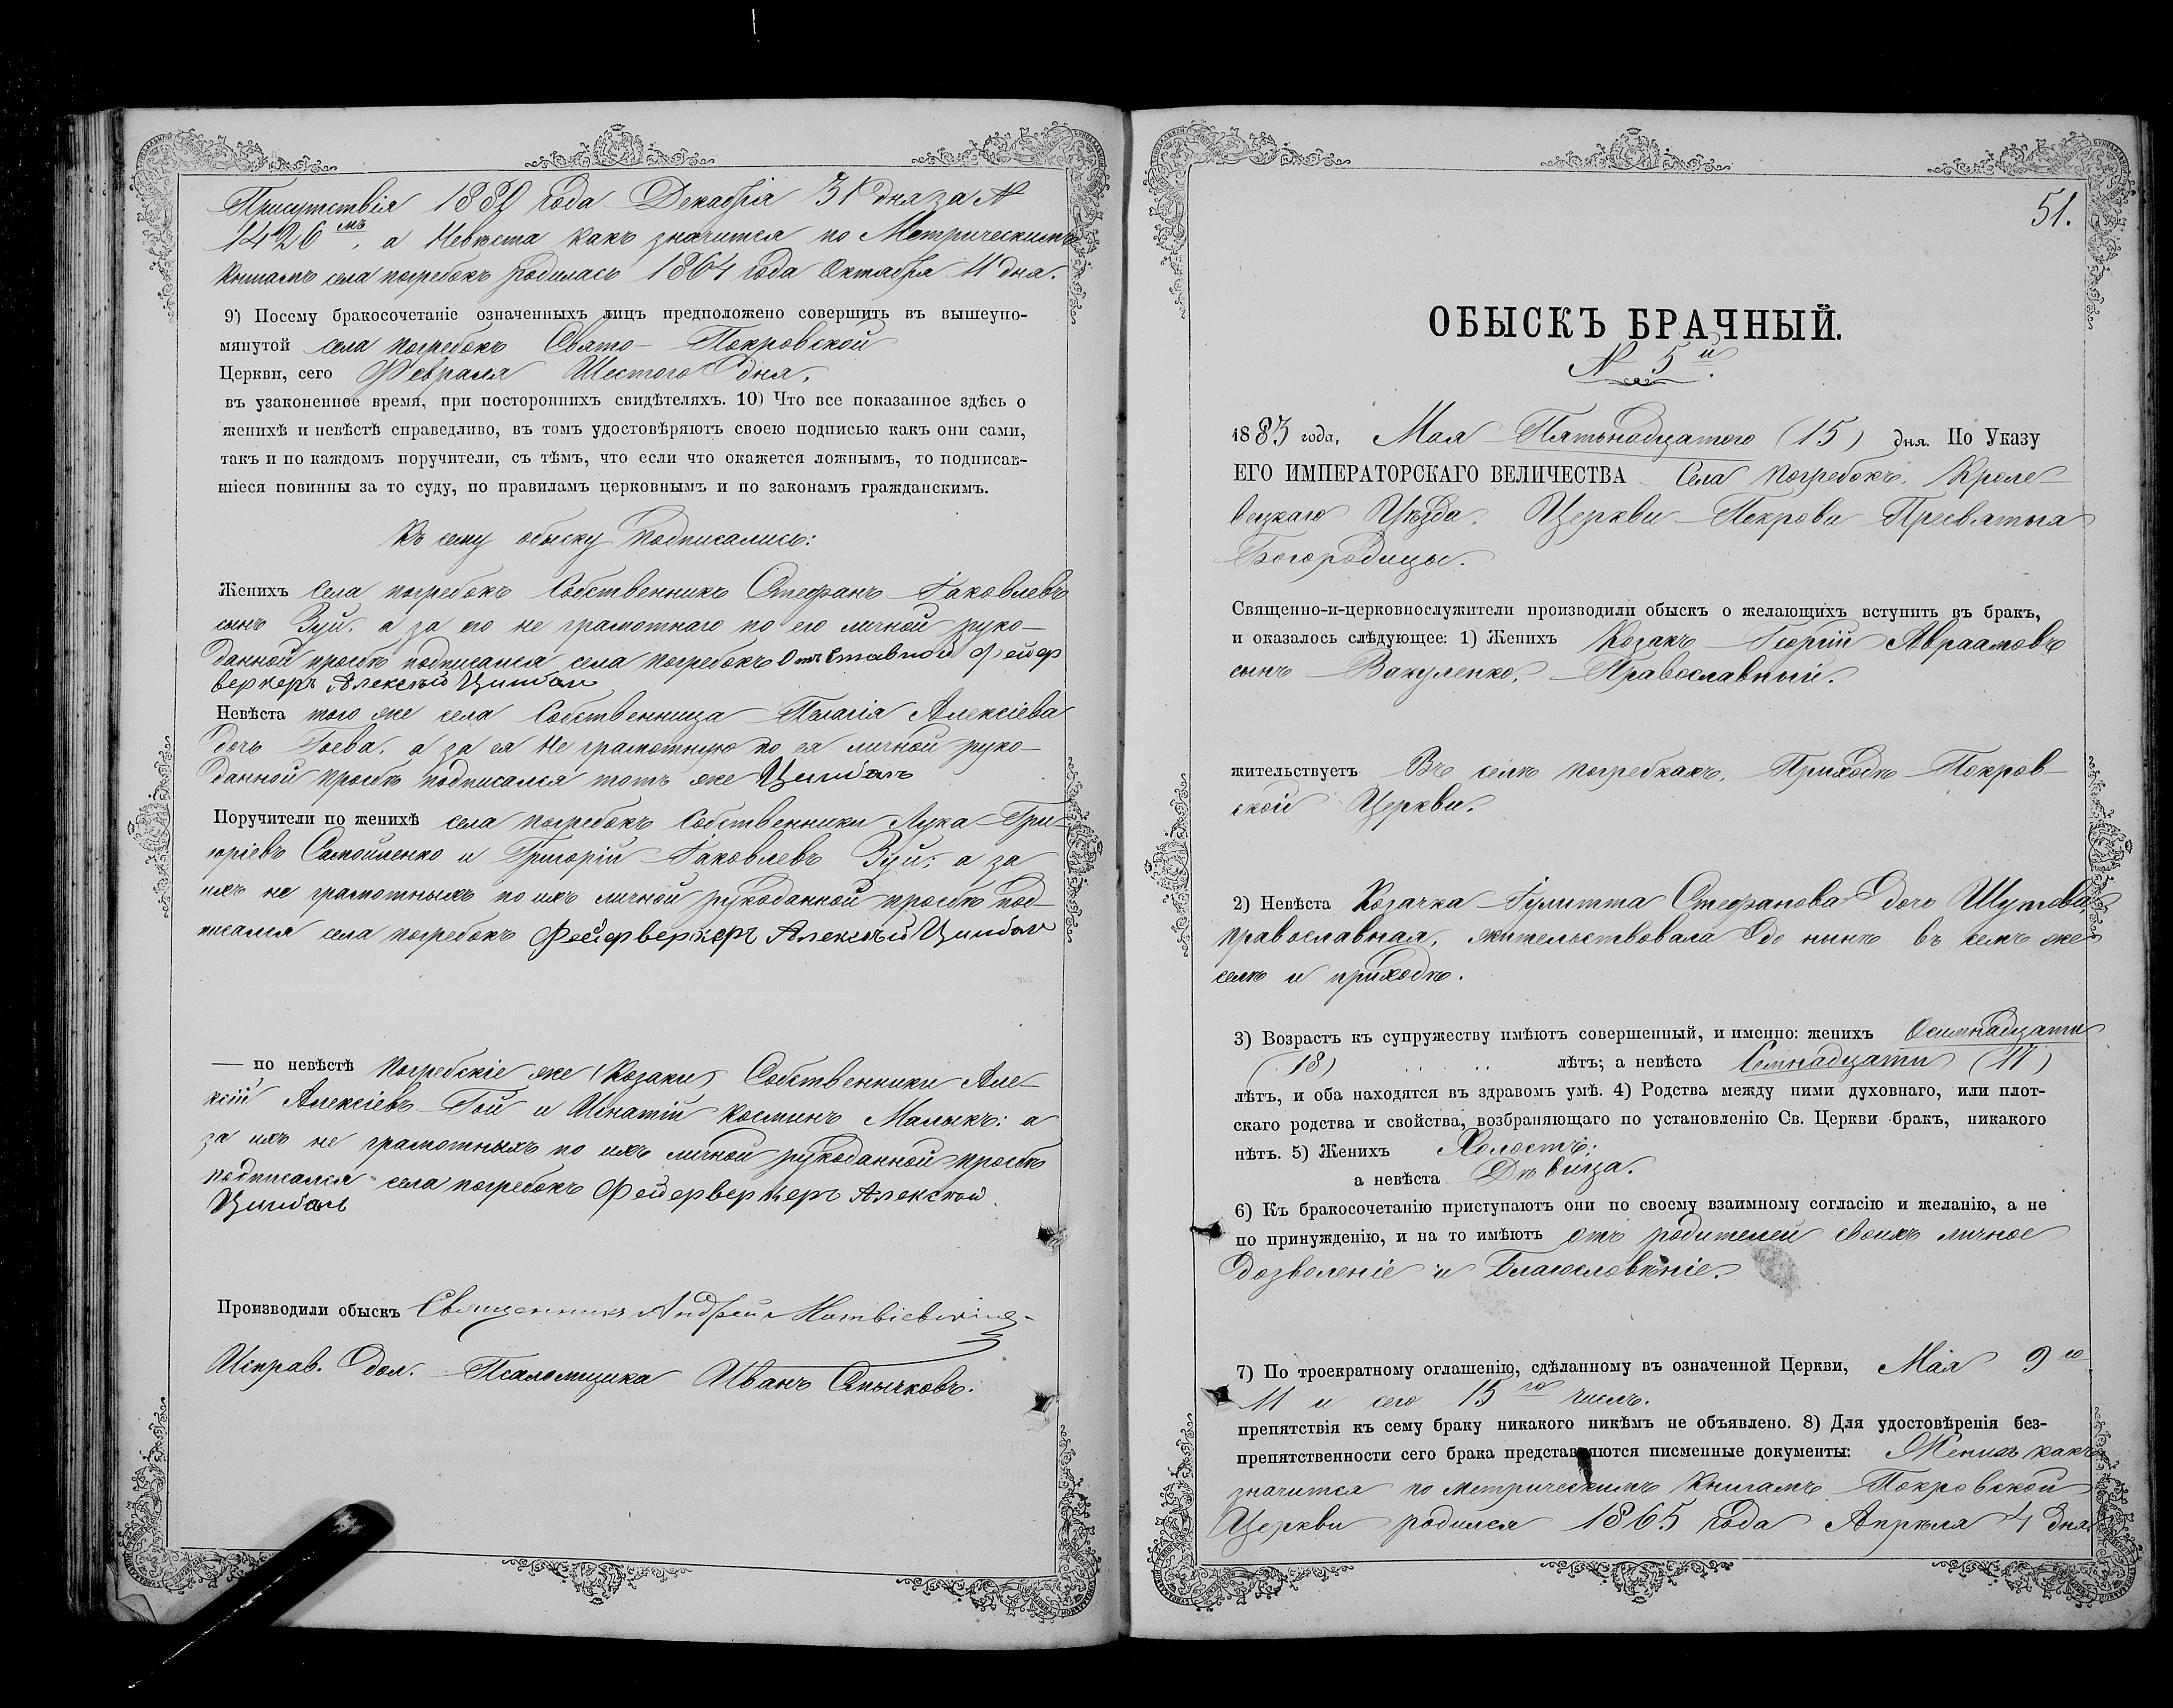 Присутствія 1882 года Декабря 31 дня за №
1426 мъ. а Невеста какъ значится по Метрическимъ
книгамъ села погребокъ родилась 1864 года Октября 4 дня.
9) Посему бракосочетаніе означенныхъ лицъ предположено совершить въ вышеупо-
мянутой села погребокъ Свято- Покровской
Церкви, сего Февраля Шестого дня.
въ узаконенное время, при постороннихъ свидѣтеляхъ. 10) Что все показанное здѣсь о
женихѣ и невѣстѣ справедливо, въ томъ удостовѣряютъ своею подписью какъ они сами,
такъ и по каждомъ поручители, съ тѣмъ, что если что окажется ложнымъ, то подписав-
шіеся повинны за то суду, по правиламъ церковнымъ и по законамъ гражданскимъ.
Къ сему обыску подписались:
Женихъ села погребокъ Собственникъ Стефанъ Іаковлевъ
сынъ Зуй, а за его не грамотнаго по его личной руко-
данной просьбѣ подписался села погребокъ Отъставной фейер
веркеръ Алексѣй Цимбал
Невѣста того же села Собственница Пелагія Алексіева
дочь Гоева, а за ея не грамотную по ея личной руко-
данной просьбѣ подписался тотъ же Цимбалъ
Поручители по женихѣ села погребокъ Собственники Лука Гри-
горіевъ Самойленко и Григорій Іаковлевъ Зуй; а за
ихъ не грамотныхъ по ихъ личной рукоданной просьбѣ под-
писался села погребокъ Фейерверкеръ Алексѣй Цимбал
— по невѣстѣ Погребскіе же (Козаки) Собственники Але-
ксій Алексіевъ Гой и Игнатій Костинъ Малыкъ: а
за ихъ не грамотныхъ по ихъ личной рукоданной просьбѣ
подписался села погребокъ Фейерверкеръ Алексѣй
Цимбал
Производили обыскъ Священникъ Андрей Матвіевичъ
Исправ. дол. Псаломщика Иванъ Смычковъ.
51.
ОБЫСКЪ БРАЧНЫЙ.
№ 5й.
1883 года, Мая Пятьнадцатого (15) дня. По Указу
ЕГО ИМПЕРАТОРСКАГО ВЕЛИЧЕСТВА Села Погребокъ, Кроле-
вецкаго Уѣзда, Церкви Покрова Пресвятыя
Богородицы.
Священно-и-церковнослужители производили обыскъ о желающихъ вступить въ бракъ,
и оказалось слѣдующее: 1) Женихъ Козакъ Георгій Авраамовъ
сынъ Вакуленко, Православный.
жительствуетъ Въ селѣ погребкахъ, Приходѣ Покров-
ской Церкви.
2) Невѣста Козачка Іулитта Стефанова дочь Шутова,
православная, жительствовала до нынѣ въ семъ же
селѣ и приходѣ.
3) Возрастъ къ супружеству имѣютъ совершенный, и именно: женихъ Осимнадцати
(18) лѣтъ; а невѣста Семнадцати (17)
лѣтъ, и оба находятся въ здравомъ умѣ. 4) Родства между ними духовнаго, или плот-
скаго родства и свойства, возбраняющаго по установленію Св. Церкви бракъ, никакого
нѣтъ. 5) Женихъ Холостъ:
а невѣста Дѣвица.
6) Къ бракосочетанію приступаютъ они по своему взаимному согласію и желанію, а не
по принужденію, и на то имѣютъ отъ родителей своихъ личное
дозволеніе и Благословѣніе.
7) По троекратному оглашенію, сдѣланному въ означенной Церкви, Мая 9 го
11 и сего 15 го числъ.
препятствія къ сему браку никакого никѣмъ не объявлено. 8) Для удостовѣренія без-
препятственности сего брака представляются писменные документы: Женихъ какъ
значится по метрическимъ Книгамъ Покровской
Церкви родился 1865 года Апрѣля 4 дня